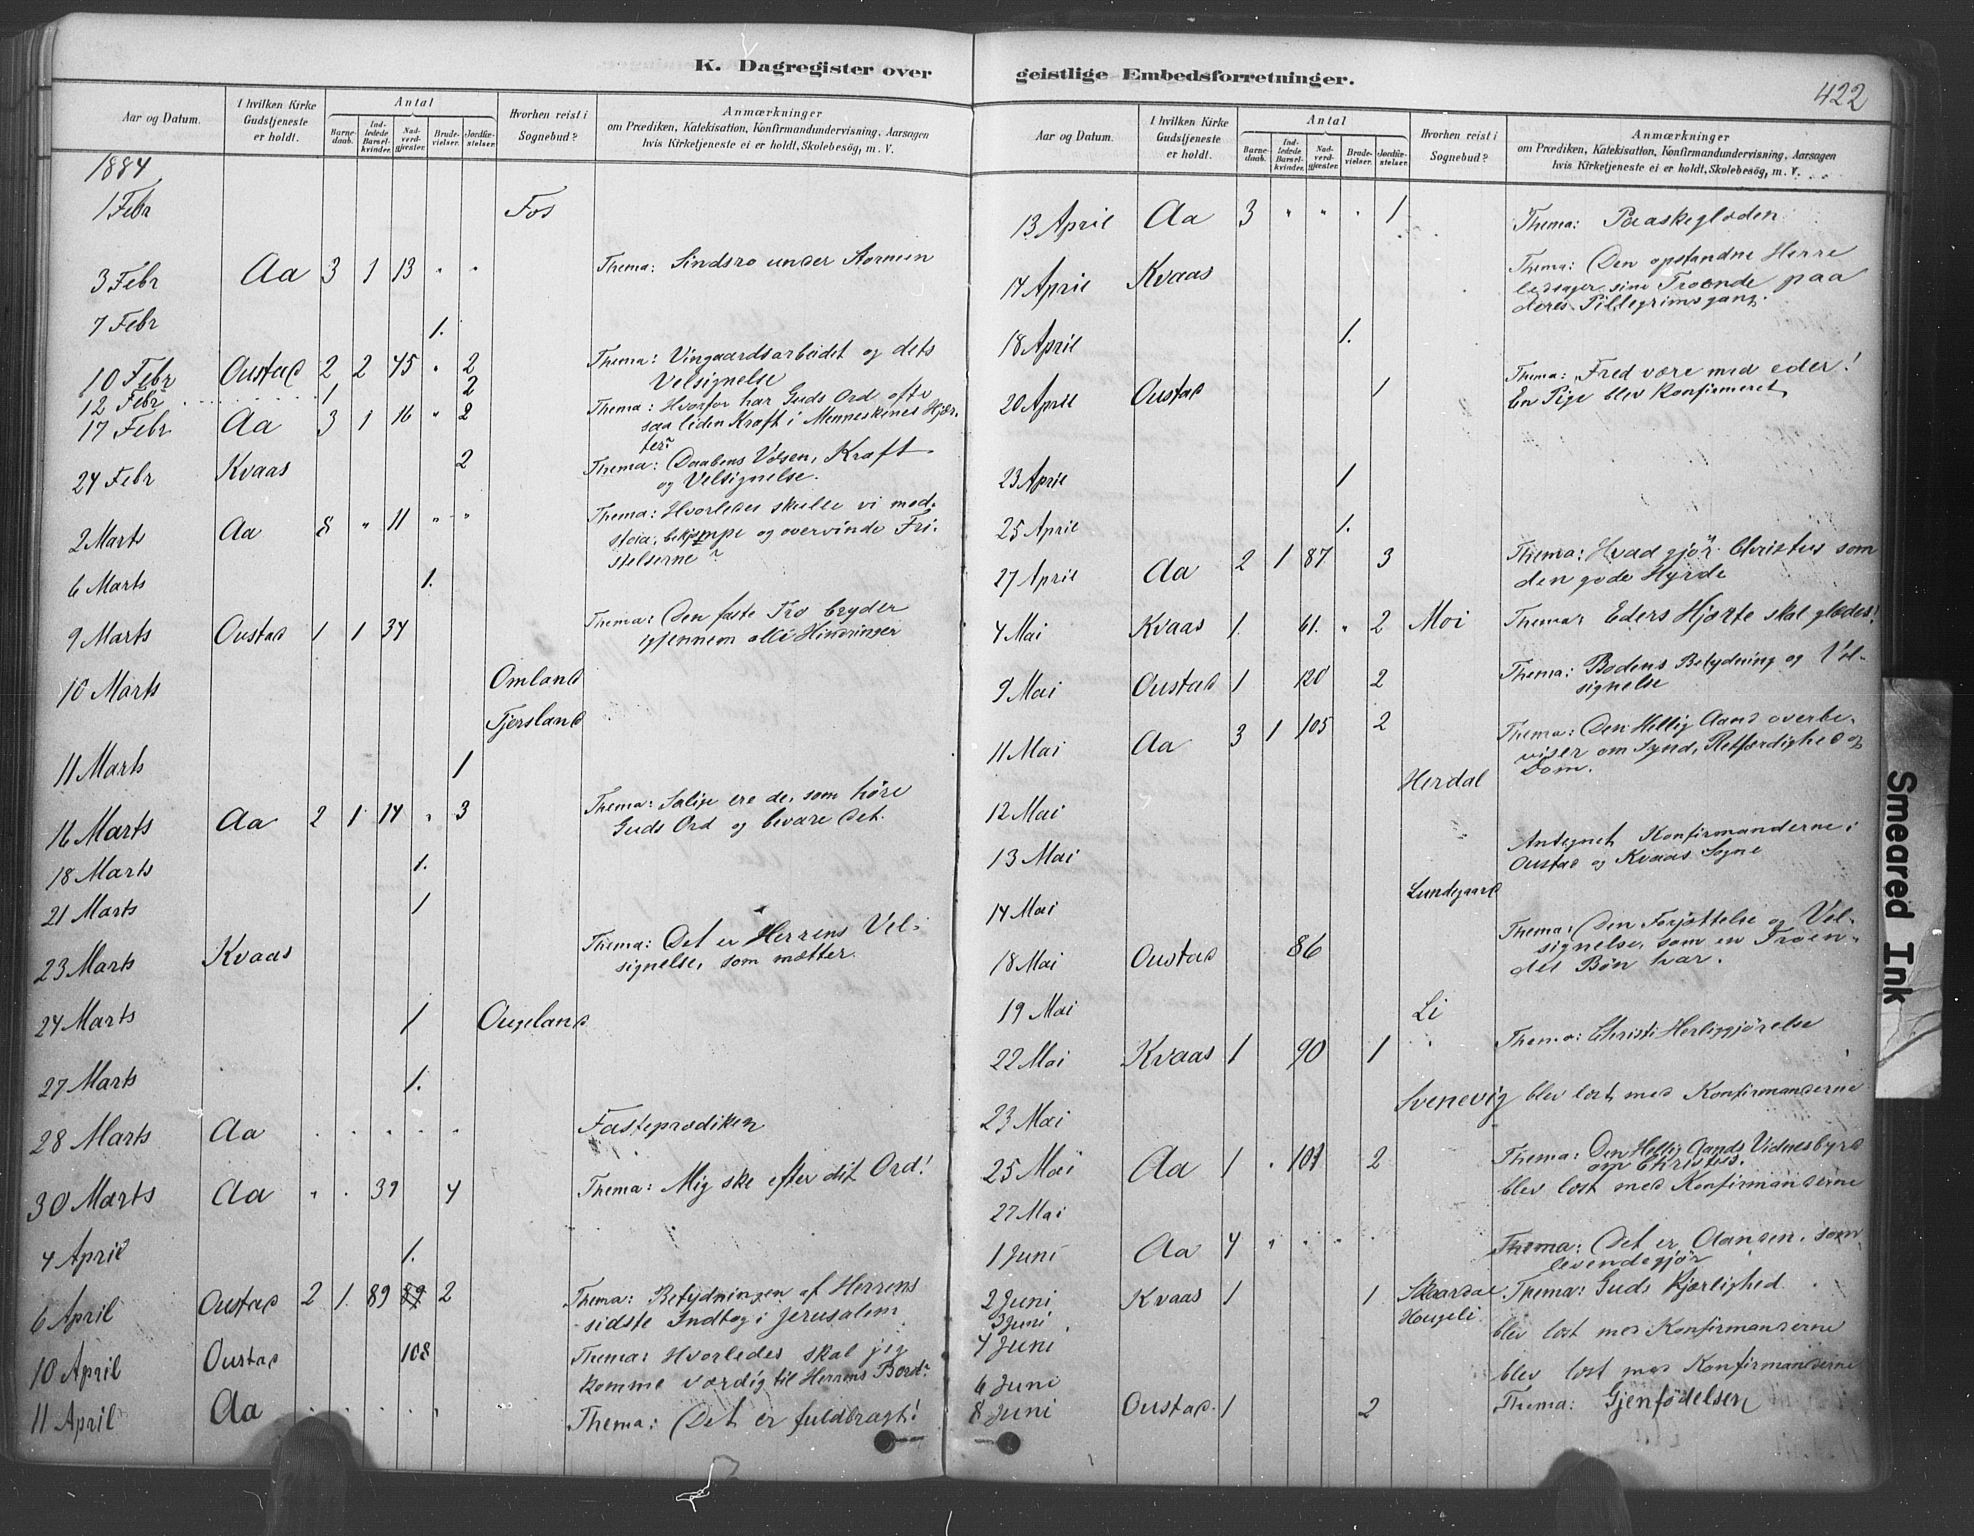 K. Dagregister over
Aar og Datum.
I hvilken Kirke Gudstjeneste er holdt.
Antal
Barne- daab.
Ind- ledede Barsel- kvinder.
Nad- verd- gjæster.
Brude- vielser.
Jordfæ- stelser.
Hvorhen reist i Sognebud?
Anmærkninger
om Prædiken, Katekisation, Konfirmandundervisning, Aarsagen
hvis Kirketjeneste ei er holdt, Skolebesøg, m. V.
1884
1 Febr Fos
3 Febr Aa 3 1 13 " " Thema: Sindsro under Stormen
7 Febr 1.
10 Febr Oustad 2 2 45 " 2 Thema: Vingaardsarbeidet og dets
Velsignelse
12 Febr 1 2
17 Febr Aa 3 1 16 " 2 Thema: Hvorfor har Guds Ord ofte
saa liden Kraft i Menneskenes Hjær-
ter?
24 Febr Kvaas 2 Thema: Daabens Væsen, Kraft
og Velsignelse.
2 Marts Aa 8 " 11 " " Thema: Hvorledes skulle vi mod-
staa, bekjæmpe og overvinde Fri-
stelserne?
6 Marts 1.
9 Marts Oustad 1 1 34 Thema: Den faste Tro bryder
igjennem alle Hindringer
10 Marts Omland
Fjersland
11 Marts 1
16 Marts Aa 2 1 14 " 3 Thema: Salige ere de, som høre
Guds Ord og bevare det.
18 Marts 1.
21 Marts 1
23 Marts Kvaas Thema: Det er Herrens Vel-
signelse, som mætter.
24 Marts 1 Ougeland
27 Marts 1.
28 Marts Aa . . . . . Fasteprædiken
30 Marts Aa " . 39 4 Thema: Mig ske efter dit Ord!
4 April 1.
6 April Oustad 2 1. 89 89 2 Thema: Betydningen af Herrens
sidste Indtog i Jerusalem
10 April Oustad 108 Thema: Hvorledes skal jeg
komme værdig til Herrens Bord?
11 April Aa . . . . " Thema: Det er fuldbragt!
geistlige Embedsforretninger.
422
Aar og Datum.
I hvilken Kirke Gudstjeneste er holdt.
Antal
Barne- daab.
Ind- ledede Barsel- kvinder.
Nad- verd- gjæster.
Brude- vielser.
Jordfæ- stelser.
Hvorhen reist i Sognebud?
Anmærkninger
om Prædiken, Katekisation, Konfirmandundervisning, Aarsagen
hvis Kirketjeneste ei er holdt, Skolebesøg, m. V.
13 April Aa 3 " " " 1 Thema: Paaskeglæden
14 April Kvaas Thema: Den opstandne Herre
ledsager sine Troende paa
deres Pillegrimsgang.
18 April 1.
20 April Oustad 1 Thema: Fred være med eder!
En Pige blev Konfirmeret
23 April 1
25 April 1.
27 April Aa 2 1 87 3 Thema: Hvad gjør Christus som
den gode Hyrde
4 Mai Kvaas 1. 61. " 2 Moi Thema: Eders Hjerte skal glædes!
9 Mai Oustad 1 120 2 Thema: Bodens Betydning og Vel-
signelse
11 Mai Aa 3 1 105 2 Thema: Den Hellig Aand overbe-
viser om Synd, Retfærdighed og
Dom.
12 Mai Herdal
13 Mai Antegnet Konfirmanderne i
Oustad og Kvaas Sogne
14 Mai Lundegaard
18 Mai Oustad 86 Thema: Den Forjættelse og Vel-
signelse, som en Troen-
des Bøn har.
19 Mai Li
22 Mai Kvaas 1 90 1 Thema: Christi Herliggjørelse
23 Mai Svenevig blev læst med Konfirmanderne
25 Mai Aa 1 " 101 2 Thema: Den Hellig Aands Vidnesbyrd
om Christus.
27 Mai blev læst med Konfirmanderne
1 Juni Aa 4 " " " Thema: Det er Aanden, som
levendegjør
2 Juni Kvaas 1 1 Skaardal Thema: Guds Kjærlighed
3 Juni Hougeli
4 Juni blev læst med Konfirmanderne
6 Juni blev læst med Konfirmanderne
8 Juni Oustad 1 2 Thema: Gjenfødelsen
Smeared Ink